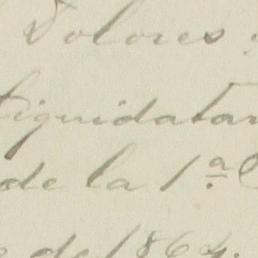 Dolores
Liquidatar
de la 1ª
de 1864.